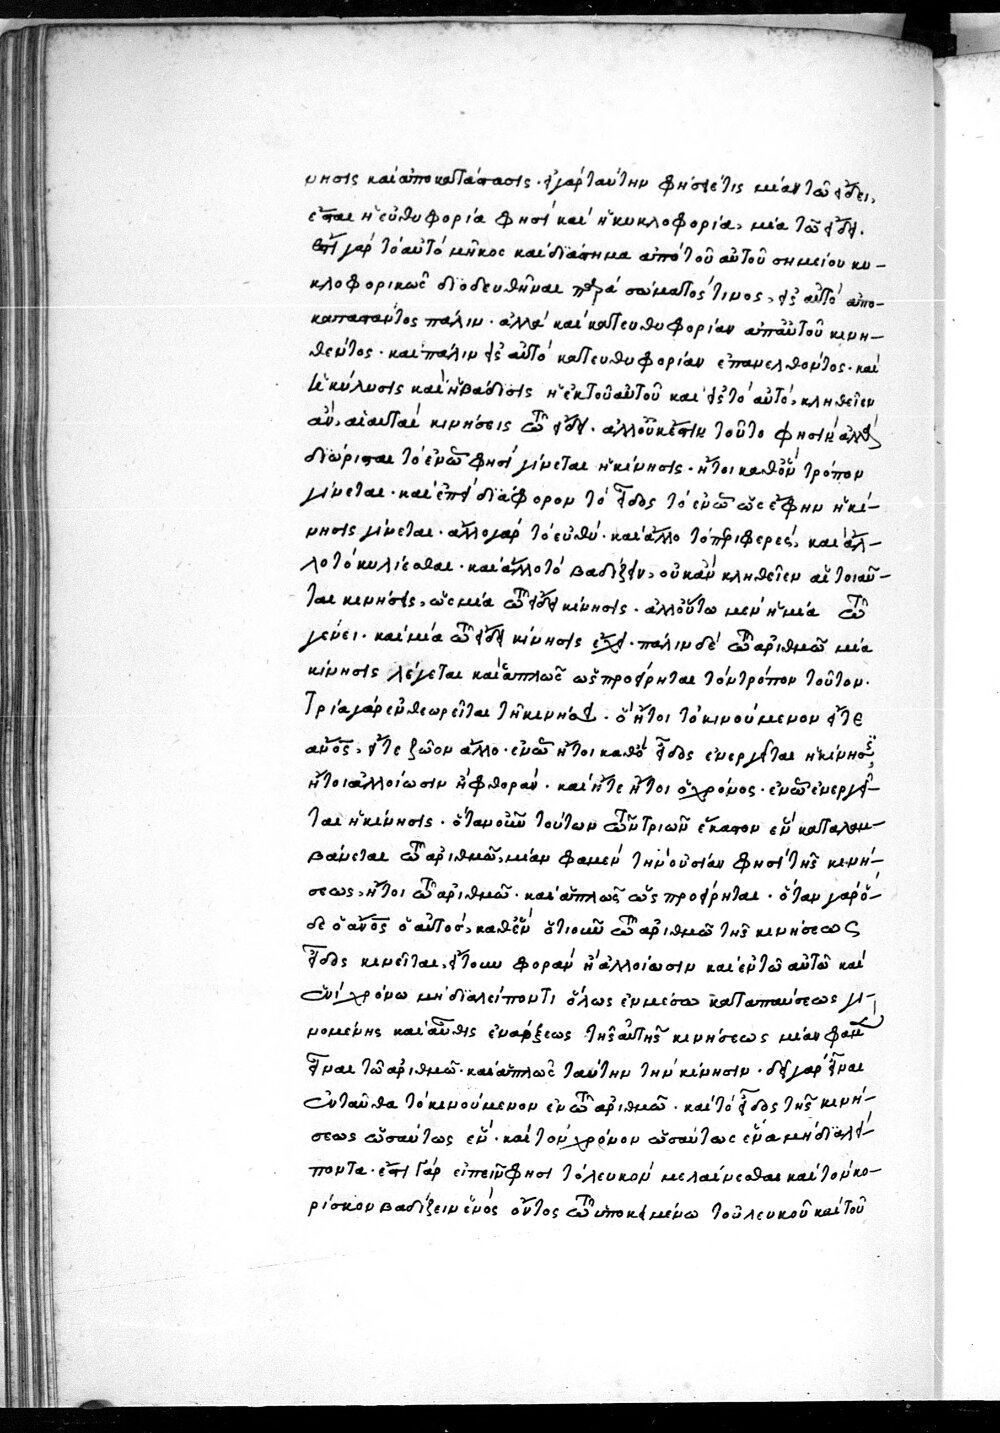 νησις καὶ ἀποκατάστασις· εἰ γὰρ ταύτην φήσει τις μίαν τῶ εἴδει,
ἔσται ἡ εὐθυφορία φησὶ καὶ ἡ κυκλοφορία, μία τῶ εἴδει.
ἔστι γὰρ τὸ αὐτὸ μῆκος καὶ διάστημα ἀπὸ τοῦ αὐτοῦ σημείου κυ-
κλοφορικῶς διοδευθῆναι παρὰ σώματός τινος, εἰς αὐτὸ ἀπο-
καταστάντος πάλιν· ἀλλὰ καὶ κατευθυφορίαν ἀπ' αὐτοῦ κινη-
θέντος· καὶ πάλιν εἰς αὐτὸ κατευθυφορίαν ἐπανελθόντος· καὶ
ἡ κύλισις καὶ ἡ βάδισις ἡ ἐκ τοῦ αὐτοῦ καὶ εἰς τὸ αὐτὸ, κληθεῖεν
ἂν, αἱ αὐταὶ κινήσεις τῶ εἴδει· ἀλλ' οὐκ ἔστιν τοῦτο φησὶν ἀλλὰ
διώρισται τὸ ἐν ὧ φησὶ γίνεται ἡ κίνησις· ἤτοι καθ' ὃν τρόπον
γίνεται· καὶ ἐπεὶ διάφορον τὸ εἶδος τὸ ἐν ὧ ὡς ἔφην ἡ κί-
νησις γίνεται· ἄλλο γὰρ τὸ εὐθὺ· καὶ ἄλλο τὸ περιφερὲς, καὶ ἄλ-
λο τὸ κυλίεσθαι· καὶ ἄλλο τὸ βαδίζειν, οὐκ ἂν κληθεῖεν αἱ τοιαῦ-
ται κινήσεις, ὡς μία τῶ εἴδει κίνησις· ἀλλ' οὕτω μὲν ἡ μία τῶ
γένει· καὶ μία τῶ εἴδει κίνησις ἔχει· πάλιν δὲ τῶ ἀριθμῶ μία
κίνησις λέγεται καὶ ἁπλῶς ὡς προείρηται τὸν τρόπον τοῦτον·
Τρία γὰρ ἐνθεωρεῖται τῆ κινήσει· ὅ ἤτοι τὸ κινούμενον εἴτε
ἄνος, εἴτε ζῶον ἄλλο· ἐν ὧ ἤτοι καθὸ εἶδος ἐνεργεῖται ἡ κίνησις
ἤτοι ἀλλοίωσιν ἢ φθορὰν· καὶ ὅτε ἤτοι ὁ χρόνος· ἐν ὧ ἐνεργεῖ-
ται ἡ κίνησις· ὅταν οὖν τούτων τῶν τριῶν ἕκαστον ἓν καταλαμ-
βάνεται τῶ ἀριθμῶ, μίαν φαμὲν τὴν οὐσίαν φησὶ τῆς κινή-
σεως, ἤτοι τῶ ἀριθμῶ· καὶ ἁπλῶς ὡς προείρηται· ὅταν γὰρ ὅ-
δε ὁ ἄνος ὁ αὐτὸς, καθ' ἓν ὁτιοῦν τῶ ἀριθμῶ τῆς κινήσεως
εἶδος κινεῖται, εἴτουν φορὰν ἢ ἀλλοίωσιν καὶ ἐν τῶ αὐτῶ καὶ
ἑνὶ χρόνω μὴ διαλείποντι ὅλως ἐν μέσω καταπαύσεως γι-
νομένης καὶ αὖθις ἐνάρξεως τῆς αὐτῆς κινήσεως μίαν φαμὲν
εἶναι τῶ ἀριθμῶ· καὶ ἁπλῶς ταύτην τὴν κίνησιν· δεῖ γὰρ εἶναι
ἐνταῦθα τὸ κινούμενον ἓν τῶ ἀριθμῶ· καὶ τὸ εἶδος τῆς κινή-
σεως ὡσαύτως ἓν· καὶ τὸν χρόνον ὡσαύτως ἕνα μὴ διαλεί-
ποντα· ἔστι γὰρ εἰπεῖν φησι τὸ λευκὸν μελαίνεσθαι καὶ τὸν κο-
ρίσκον βαδίζειν ἑνὸς ὄντος τῶ ὑποκειμένω τοῦ λευκοῦ καὶ τοῦ